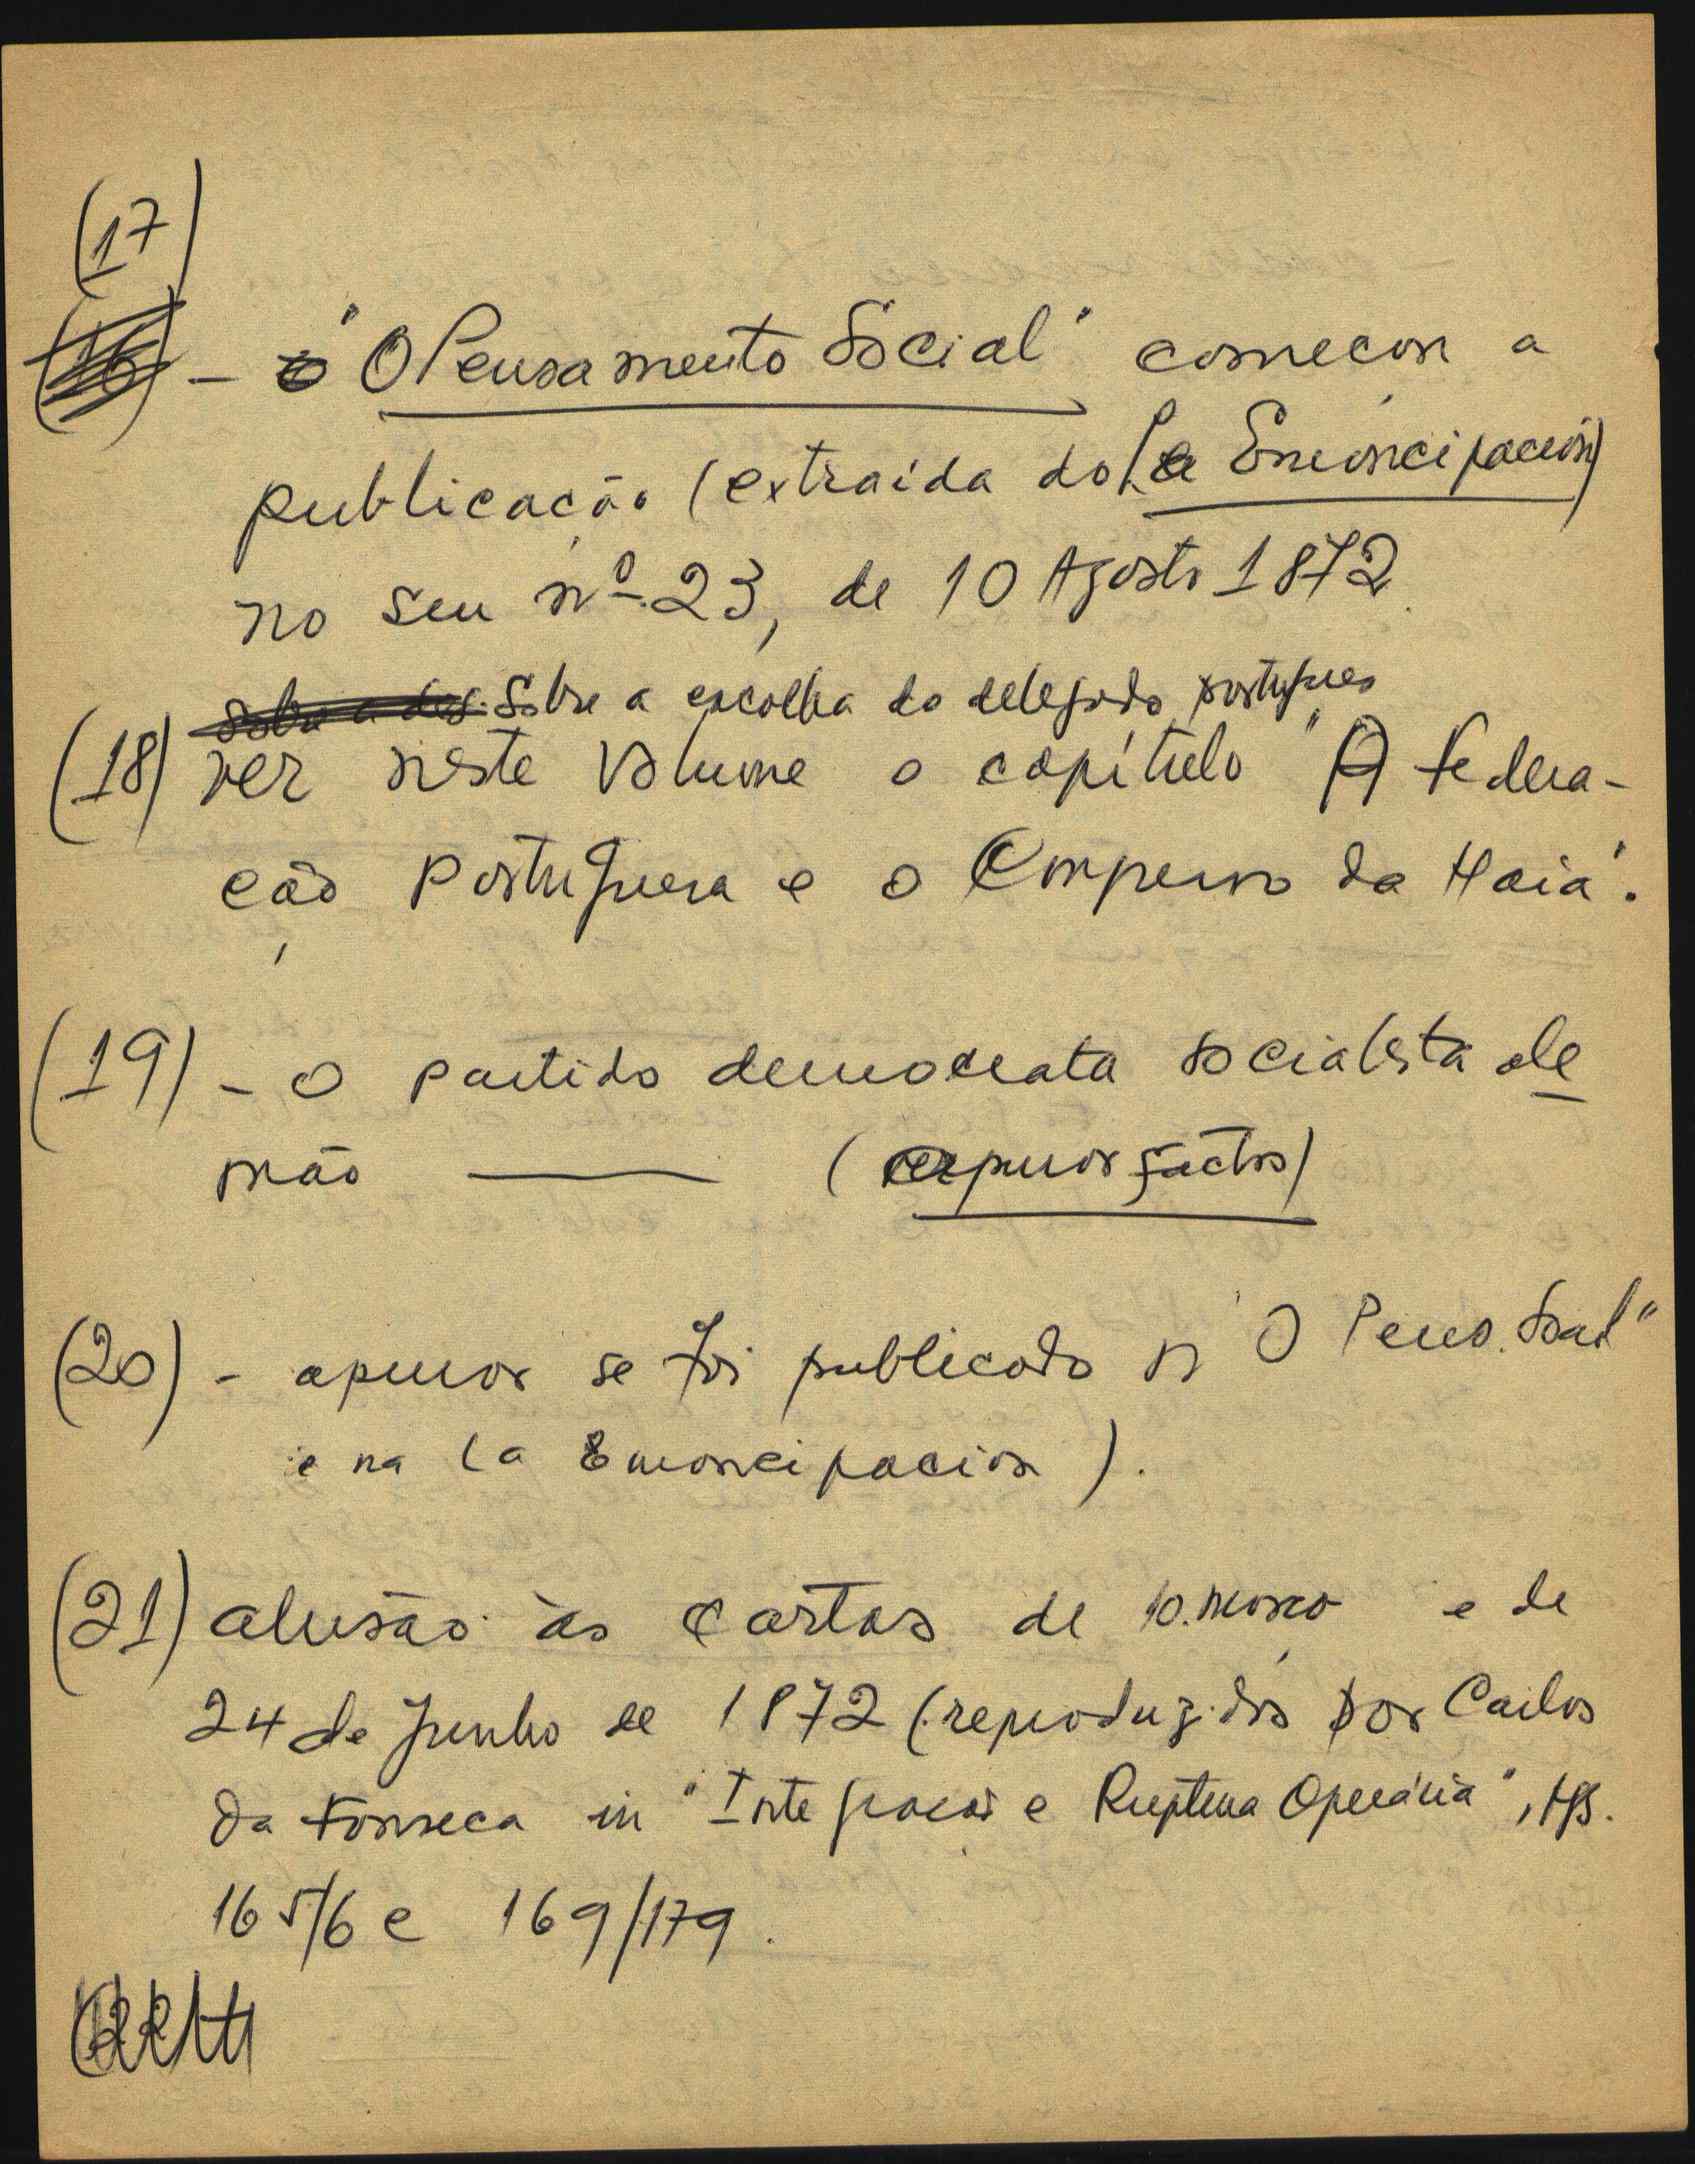 (17)
(16) - o "O Pensamento Social" começou a
publicação (extraída do La Emancipación)
no seu nº 23, de 10 Agosto 1872.
sobre a des. Sobre a escolha do delegado português
(18) ver neste volume o capítulo "A Federa-
ção Portuguesa e o Congresso da Haia".
(19) - o partido democrata socialista ale
mão ——— (apurar factos)
(20) - apurar se foi publicado n "O Pens. Social"
e na La Emancipacion).
(21) alusão às cartas de 10. março e de
24 de Junho de 1872 (reproduzidas por Carlos
da Fonseca in "Integração e Ruptura Operária", pgs.
165/6 e 169/179.
(22)